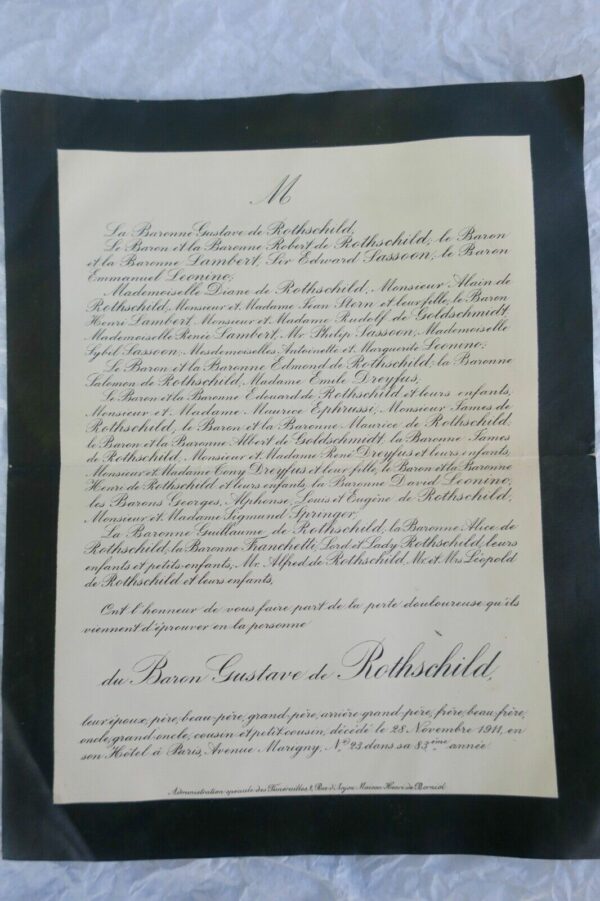 M
La Baronne Gustave de Rothschild,
Le Baron et la Baronne Robert de Rothschild, le Baron
et la Baronne Lambert, Sir Edward Sassoon, le Baron
Emmanuel Leonino;
Mademoiselle Diane de Rothschild, Monsieur Alain de
Rothschild, Monsieur et Madame Jean Stern et leur fille, le Baron
Henri Lambert, Monsieur et Madame Rudolf de Goldschmidt,
Mademoiselle Renée Lambert, Mr Philip Sassoon, Mademoiselle
Sybil Sassoon, Mesdemoiselles Antoinette et Marguerite Leonino;
Le Baron et la Baronne Edmond de Rothschild, la Baronne
Salomon de Rothschild, Madame Emile Dreyfus,
Le Baron et la Baronne Edouard de Rothschild et leurs enfants,
Monsieur et Madame Maurice Ephrussi, Monsieur James de
Rothschild, le Baron et la Baronne Maurice de Rothschild,
le Baron et la Baronne Albert de Goldschmidt, la Baronne James
de Rothschild, Monsieur et Madame René Dreyfus et leurs enfants,
Monsieur et Madame Tony Dreyfus et leur fille, le Baron et la Baronne
Henri de Rothschild et leurs enfants, la Baronne David Leonino,
les Barons Georges, Alphonse, Louis et Eugène de Rothschild,
Monsieur et Madame Sigmund Springer,
La Baronne Guillaume de Rothschild, la Baronne Alice de
Rothschild, la Baronne Franchetti, Lord et Lady Rothschild, leurs
enfants et petits-enfants, Mr. Alfred de Rothschild, Mr. et Mrs Léopold
de Rothschild et leurs enfants,
Ont l'honneur de vous faire part de la perte douloureuse qu'ils
viennent d'éprouver en la personne
du Baron Gustave de Rothschild,
leur époux, père, beau-père, grand-père, arrière-grand-père, frère, beau-frère,
oncle, grand-oncle, cousin et petit cousin, décédé le 28 Novembre 1911, en
son Hôtel à Paris, Avenue Marigny, No 23 dans sa 83ème année.
Administration spéciale des Funérailles, 1, Rue d'Anjou Maison Henri de Borniol